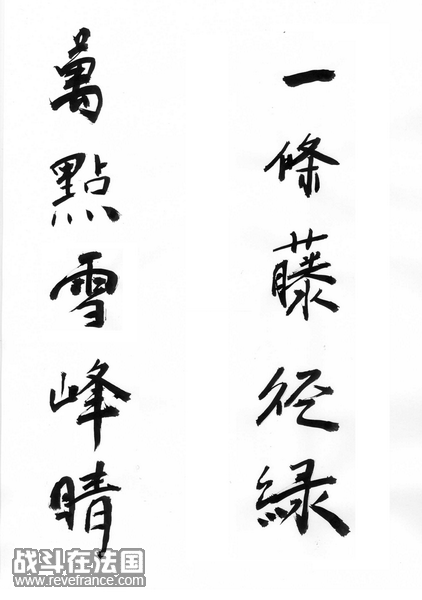 一條藤径綠
萬點雪峰晴
战斗在法国
www.revefrance.com